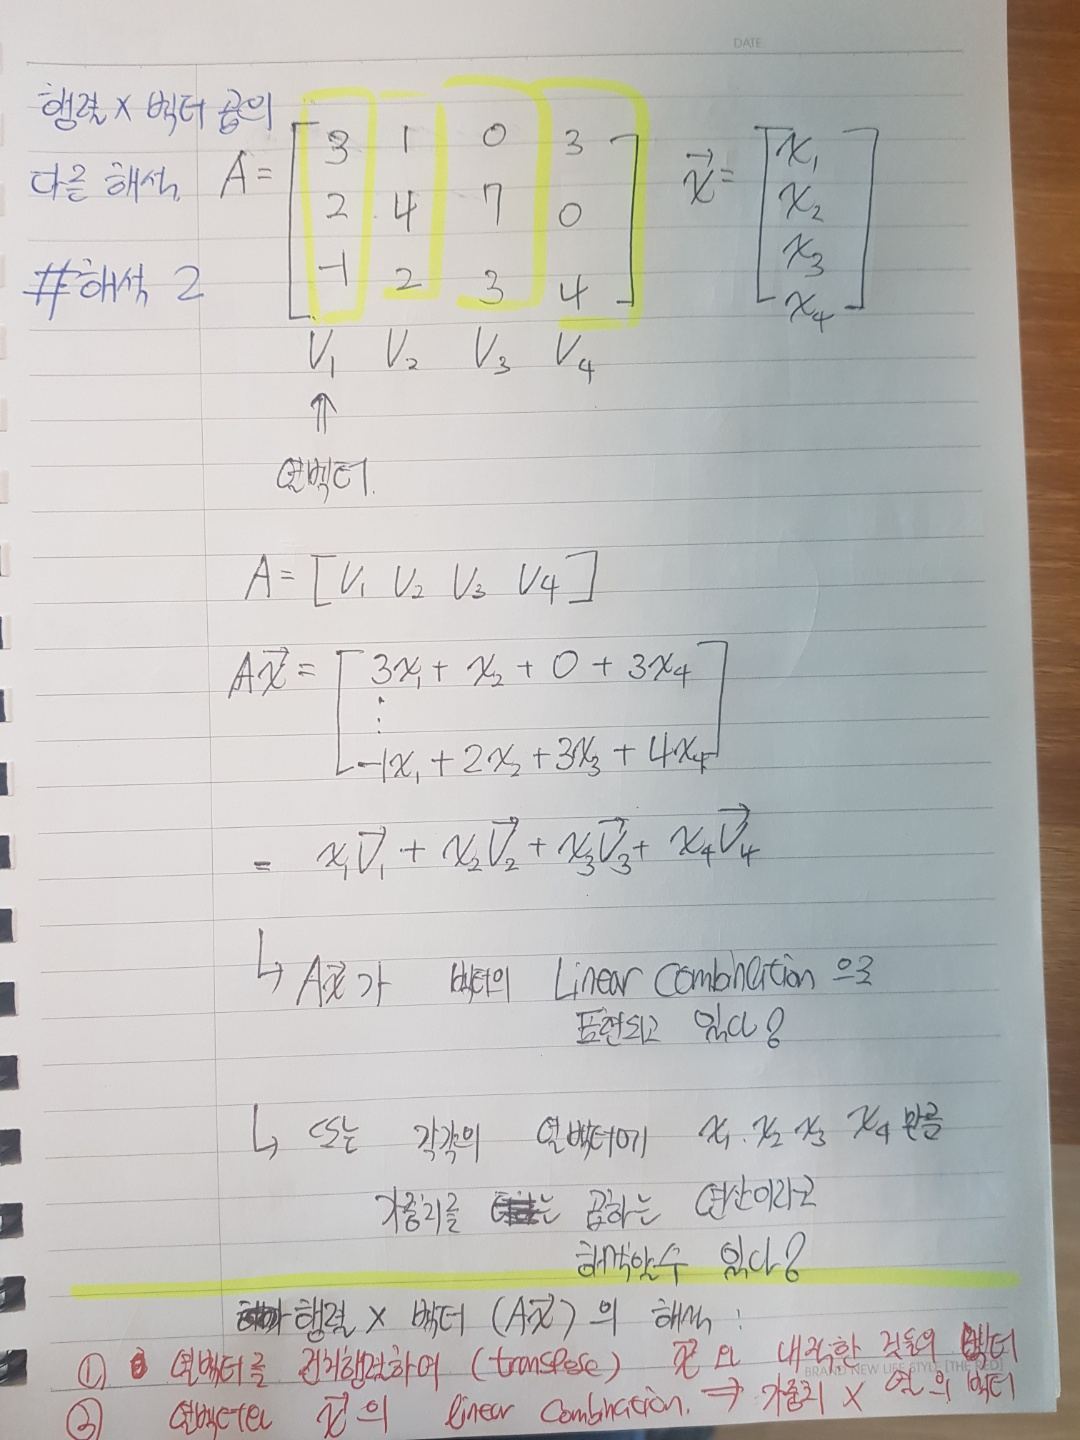 DATE
행렬 X 벡터 곱의
다른 해석.
#해석 2
A = [ 3 1 0 3
2 4 7 0
-1 2 3 4 ]
x⃗ = [ x₁
x₂
x₃
x₄ ]
V₁ V₂ V₃ V₄
↑
열벡터.
A = [ V₁ V₂ V₃ V₄ ]
Ax⃗ = [ 3x₁ + x₂ + 0 + 3x₄
⋮
-1x₁ + 2x₂ + 3x₃ + 4x₄ ]
= x₁V⃗₁ + x₂V⃗₂ + x₃V⃗₃ + x₄V⃗₄
↳ Ax⃗가 벡터의 Linear Combination 으로
표현되고 있다?
↳ 또는 각각의 열벡터에 x₁. x₂ x₃ x₄ 만큼
가중치를 곱하는 연산이라고
해석할수 있다?
행렬 X 벡터 (Ax⃗) 의 해석 :
① 열벡터를 전치행렬하여 (transpose) x⃗ 와 내적한 것들의 벡터
BRAND NEW LIFE STYLE [THE RED]
② 열벡터 x⃗ 의 linear Combination. → 가중치 X 열의 벡터